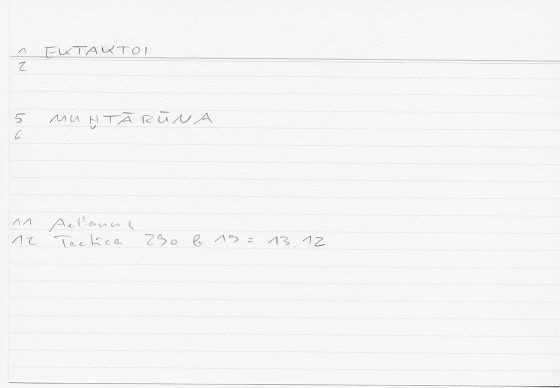 1 EKTAKTOI
2
5 MUḪTĀRŪNA
6
11 Aelianus
12 Tactica 290 b 19 = 13.12